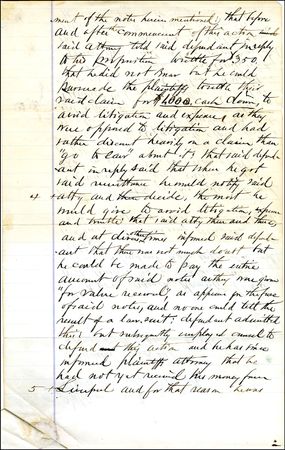 ment of the notes herein mentioned; that before
and after commencement of this action
said Attorney told said defendant in reply
to his proposition to settle for $350.
that he did not know but he could
persuade the plaintiffs to settle their
said claim for $1,000. cash down, to
avoid litigation and expense, as they
were opposed to litigation and had
rather discount heavily on a claim than
"go to law" about it; that said defend-
ant in reply said that when he got
said remittance he would notify said
4 atty and then decide, the most he
would give to avoid litigation,
and settle that said atty then and there
and at divers times informed said defend-
ant that there was not much doubt but
he could be made to pay the entire
amount of said notes as they were given
"for value received", as appears on the face
of said notes, and no one could tell the
result of a law suit; defendant admitted
this but subsequently employed counsel to
defend this action and he has since
informed plaintiffs attorney that he
had not yet received his money from
5 and for that reason he was